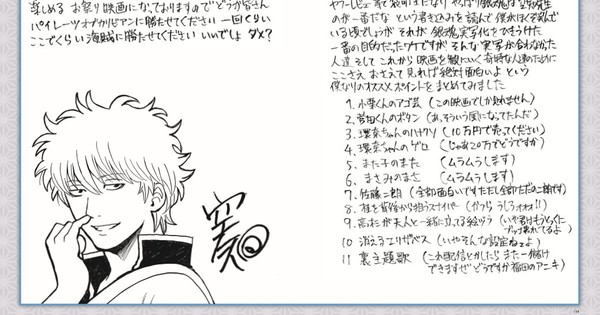 楽しめる お祭り映画になっておりますので どうか皆さん
パイレーツ オブ カリビアンに勝たせてください 一回くらい
ここでくらい 海賊に勝たせてください いいでしょ ダメ?
ヤフーレビュー
やっぱり
のが一番だな という書き込みを読んで 僕がほくそ笑んで
いる頃でしょうが それが 銀魂実写化をきうけた
一番の目的だったワケですが そんな 実写が合わなかった
人達 そして これから 映画を観にいく 奇特な人達のために
ここさえ おさえて 見れば 絶対面白いよ という
僕なりのオススメポイントをまとめてみました
1. 小栗くんのアゴ芸 (この映画でしか見れません)
2. 菅田くんのボタン (あ、そういう風になってたんだ)
3. 環奈ちゃんのハナクソ (10万円で売ってください)
4. 環奈ちゃんのゲロ (じゃあ20万でどうですか)
5. また子のまた (ムラムラします)
6. まさみのまさ (ムラムラします)
7. 佐藤二朗 (全部面白いです ただし全部ただの二朗です)
8. 桂を背後から狙うスナイパー (かつら うしろォォォ!!)
9. 高杉が天人と一緒に立ってる絵ヅラ (いや君はそうとう
ブッ壊れてるよ)
10 消えるエリザベス (いやそんな設定ねェよ)
11 裏主題歌 (これ配信とかしたら また一儲け
できますぜ どうですか 福田のアニキ)
空知